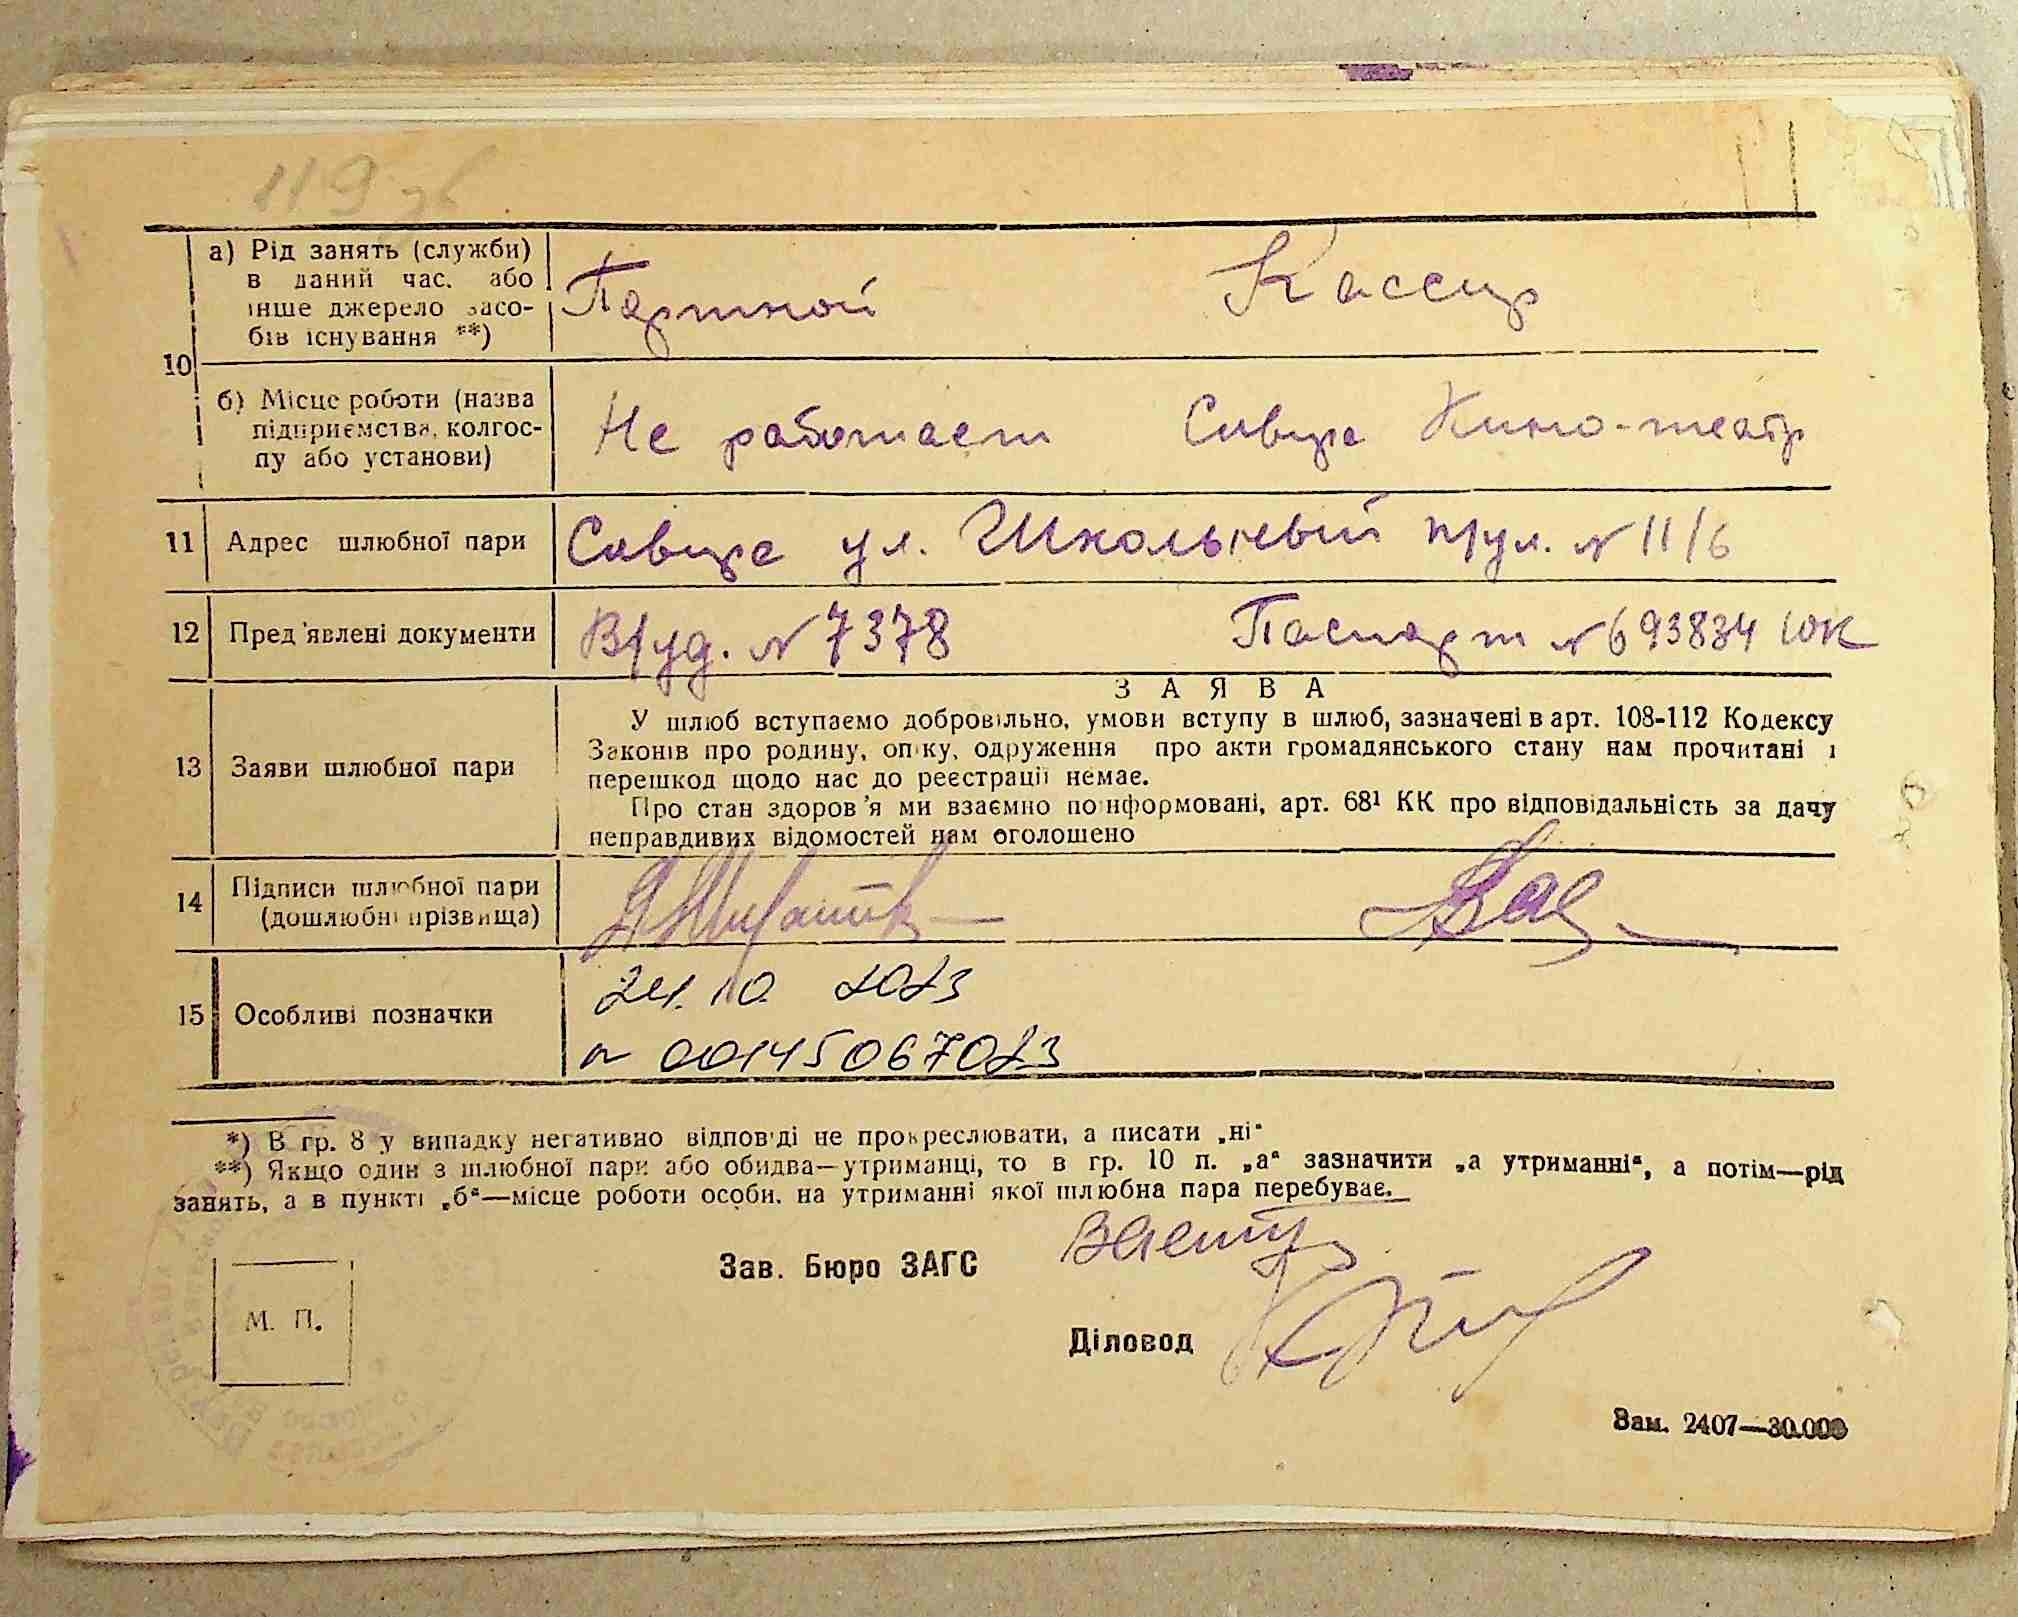 119 зв
10
а) Рід занять (служби)
в даний час, або
інше джерело засо-
бів існування **)
Портной Кассир
б) Місце роботи (назва
підприємства, колгос-
пу або установи)
Не работает Кино-театр
11 Адрес шлюбної пари
ул. Школьный п/ул. № 11/6
12 Пред'явлені документи
В/уд. № 7378 Паспорт № 693834 ЮК
ЗАЯВА
13 Заяви шлюбної пари
У шлюб вступаємо добровільно, умови вступу в шлюб, зазначені в арт. 108-112 Кодексу
Законів про родину, опіку, одруження про акти громадянського стану нам прочитані і
перешкод щодо нас до реєстрації немає.
Про стан здоров'я ми взаємно поінформовані, арт. 68¹ КК про відповідальність за дачу
неправдивих відомостей нам оголошено
14 Підписи шлюбної пари
(дошлюбні прізвища)
15 Особливі позначки
24.10 2023
№ 00145067023
*) В гр. 8 у випадку негативно відповіді не прокреслювати, а писати „ні“
**) Якщо один з шлюбної пари або обидва—утриманці, то в гр. 10 п. „а“ зазначити „а утриманні“, а потім—рід
занять, а в пункті „б“—місце роботи особи, на утриманні якої шлюбна пара перебуває.
Зав. Бюро ЗАГС
М. П.
Діловод
Зам. 2407—30.000